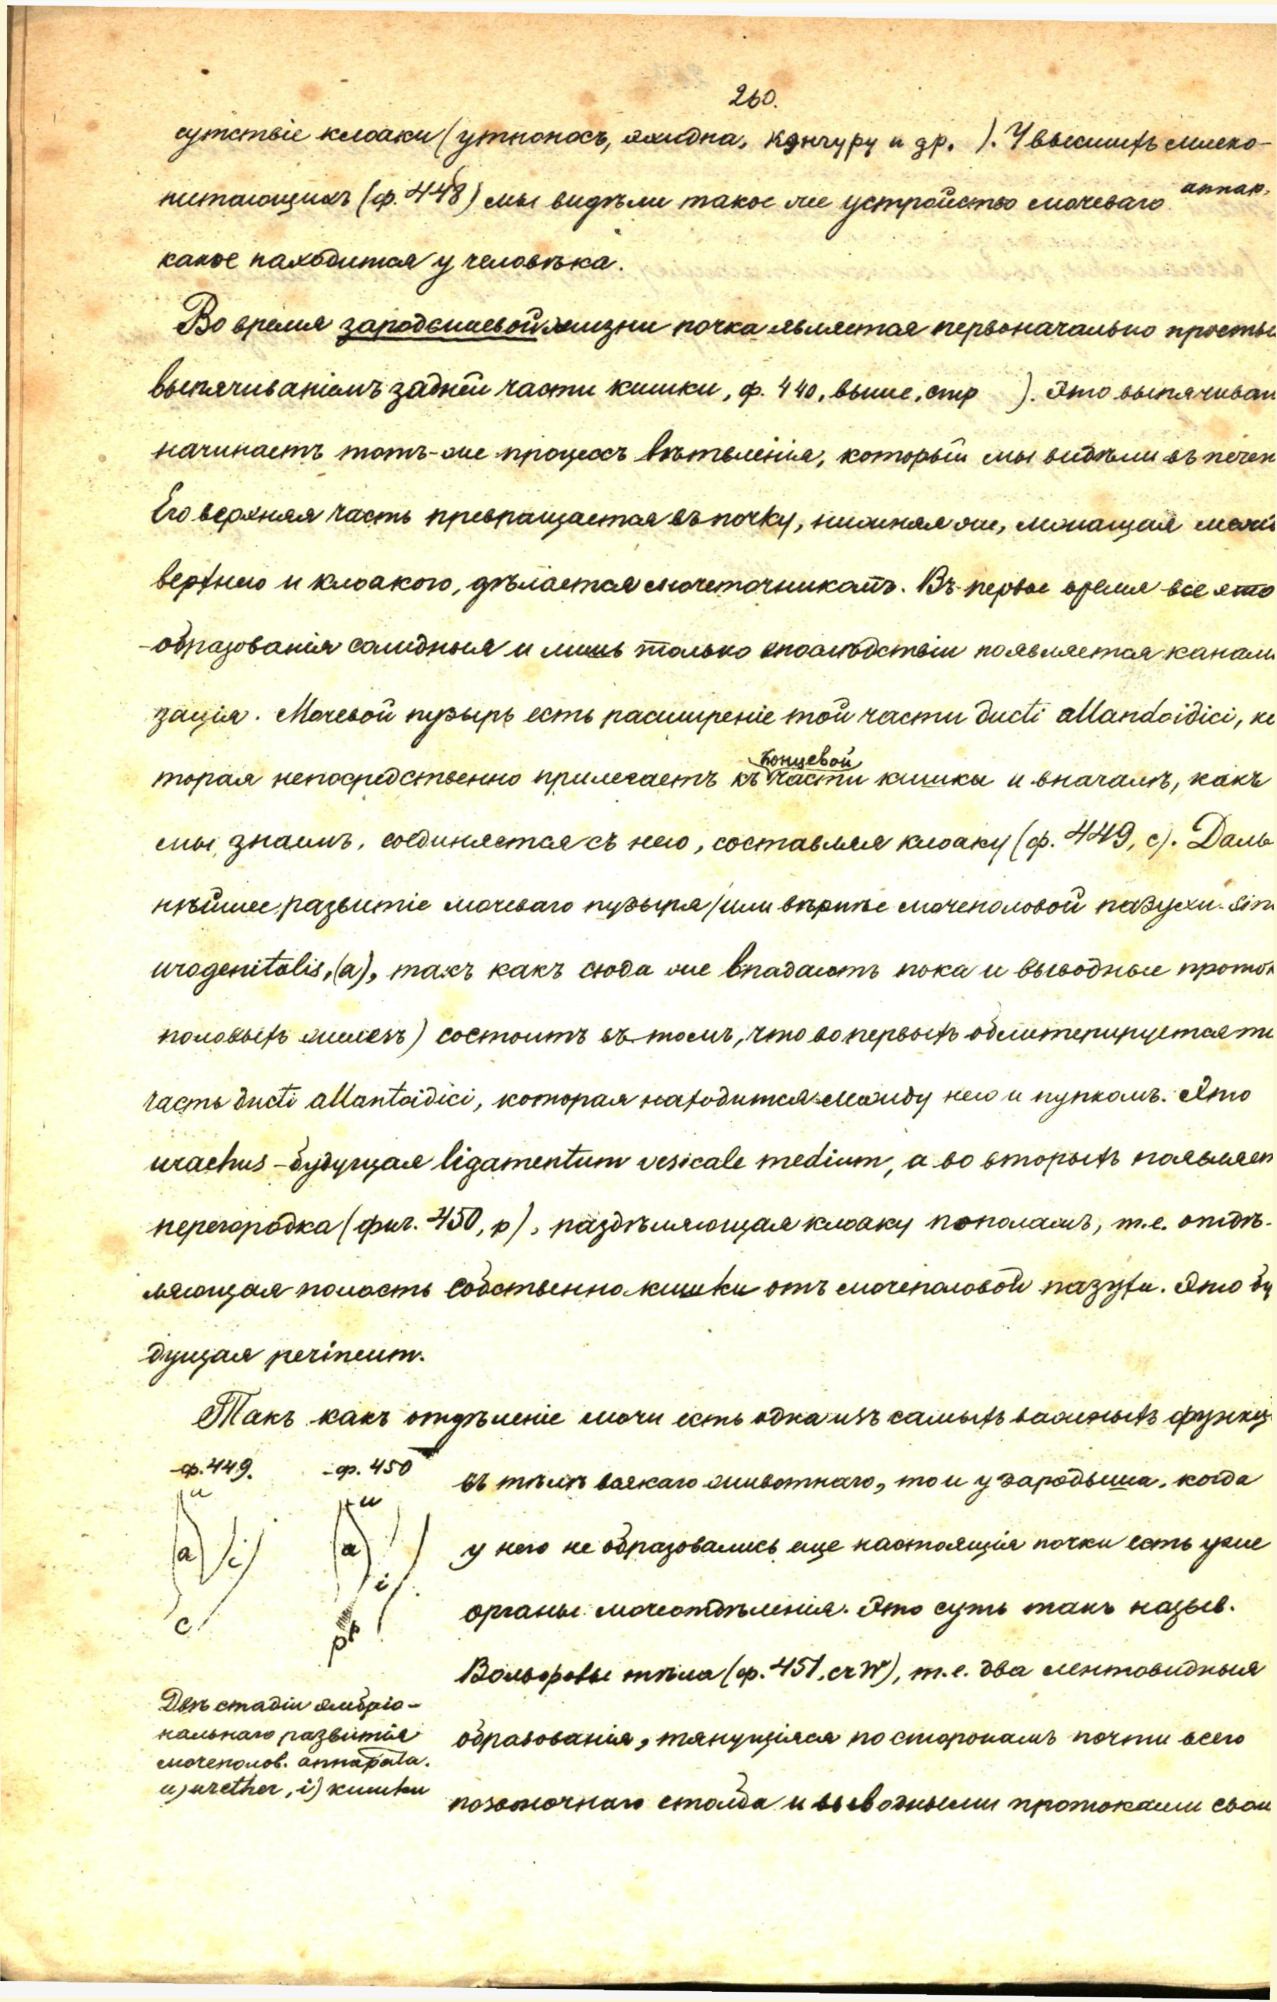 260.
сутствіе клоаки (утконосъ, эхидна, кэнгуру и др. ). У высшихъ млеко-
питающихъ (ф. 448) мы видѣли такое же устройство мочеваго аппар.
какое находится у человѣка.
Во время зародышевой жизни почка является первоначально просты
выпячиваніемъ задней части кишки, ф. 440, выше, стр ). Это выпячиван
начинаетъ тотъ-же процессъ вѣтвленія, который мы видѣли въ печен
Его верхняя часть превращается въ почку, нижняя же, лежащая межд
верхнею и клоакою, дѣлается мочеточникомъ. Въ первое время все это
образованія солидныя и лишь только впослѣдствіи появляется канали
зація. Мочевой пузырь есть расширеніе той части ducti allandoidici, ко
торая непосредственно прилегаетъ къ концевой части кишки и вначалѣ, какъ
мы знаемъ, соединяется съ нею, составляя клоаку (ф. 449, c). Даль
нѣйшее развитіе мочеваго пузыря (или вѣрнѣе мочеполовой пазухи sin
urogenitalis, (a), такъ какъ сюда же впадаютъ пока и выводные проток
половыхъ железъ) состоитъ въ томъ, что во первыхъ облитерируется та
часть ducti allantoidici, которая находится между нею и пупкомъ. Это
urachus - будущая ligamentum vesicale medium, а во вторыхъ появляет
перегородка (фиг. 450, p), раздѣляющая клоаку пополамъ, т.е. отдѣ-
ляющая полость собственно кишки отъ мочеполовой пазухи. Это бу
дущая perineum.
Такъ какъ отдѣленіе мочи есть одна изъ самыхъ важныхъ функці
ф. 449. ф. 450
въ тѣлѣ всякаго животнаго, то и у зародыша, когда
u u
a i a i
c p
у него не образовались еще настоящія почки есть уже
органы мочеотдѣленія. Это суть такъ назыв.
Вольфовы тѣла (ф. 451, cr W), т.е. два лентовидныя
образованія, тянущіяся по сторонамъ почти всего
позвоночнаго столба и выводными протоками свои
Двѣ стадіи эмбріо-
нальнаго развитія
мочеполов. аппарата.
u) urether, i) кишки